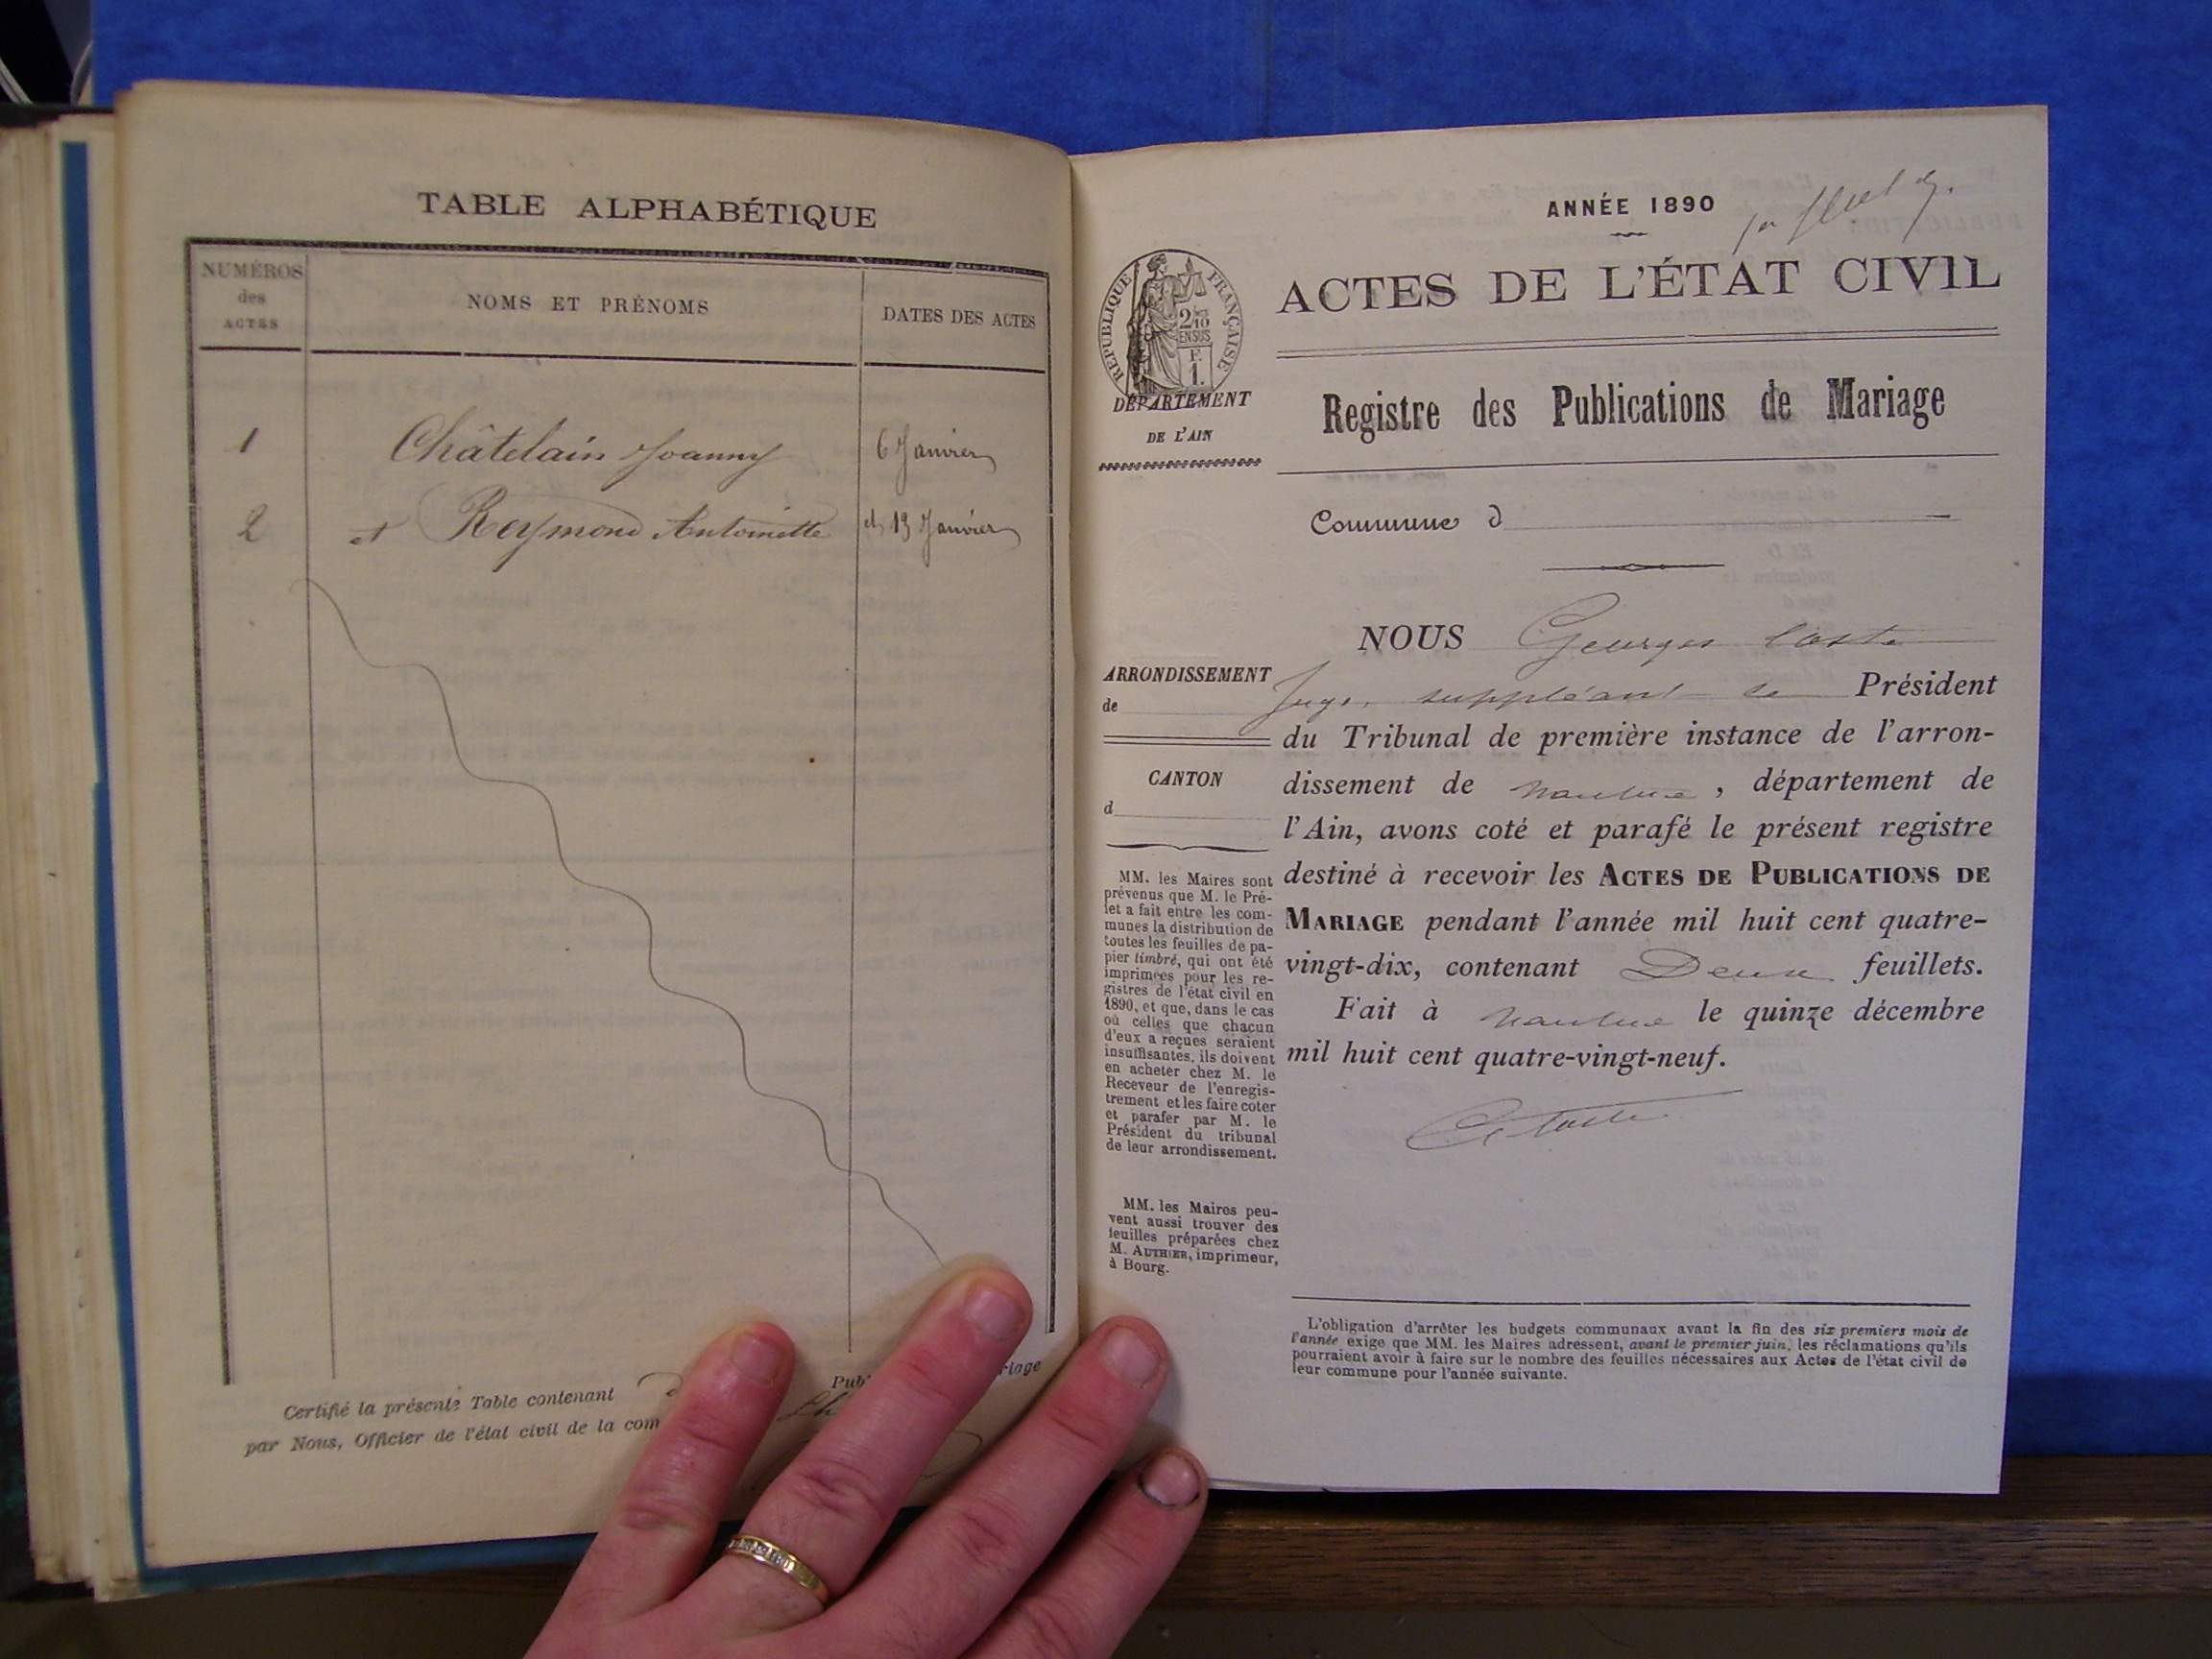 TABLE ALPHABÉTIQUE
NUMÉROS
des
ACTES
NOMS ET PRÉNOMS
DATES DES ACTES
1 Châtelain Joanny 6 Janvier
2 et Reymond Antoinette et 13 Janvier
Certifié la présente Table contenant Pub riage
par Nous, Officier de l'état civil de la com
ANNÉE 1890
ACTES DE L'ÉTAT CIVIL
RÉPUBLIQUE FRANÇAISE
2/10
EN SUS
F.
1.
DÉPARTEMENT
DE L'AIN
Registre des Publications de Mariage
Commune d
ARRONDISSEMENT
de
CANTON
d
MM. les Maires sont
prévenus que M. le Pré-
fet a fait entre les com-
munes la distribution de
toutes les feuilles de pa-
pier timbré, qui ont été
imprimées pour les re-
gistres de l'état civil en
1890, et que, dans le cas
où celles que chacun
d'eux a reçues seraient
insuffisantes, ils doivent
en acheter chez M. le
Receveur de l'enregis-
trement et les faire coter
et parafer par M. le
Président du tribunal
de leur arrondissement.
MM. les Maires peu-
vent aussi trouver des
feuilles préparées chez
M. AUTHIER, imprimeur,
à Bourg.
NOUS Georges Coste
Juge suppléant le Président
du Tribunal de première instance de l'arron-
dissement de Nantua, département de
l'Ain, avons coté et parafé le présent registre
destiné à recevoir les ACTES DE PUBLICATIONS DE
MARIAGE pendant l'année mil huit cent quatre-
vingt-dix, contenant Deux feuillets.
Fait à Nantua le quinze décembre
mil huit cent quatre-vingt-neuf.
L'obligation d'arrêter les budgets communaux avant la fin des six premiers mois de
l'année exige que MM. les Maires adressent, avant le premier juin, les réclamations qu'ils
pourraient avoir à faire sur le nombre des feuilles nécessaires aux Actes de l'état civil de
leur commune pour l'année suivante.